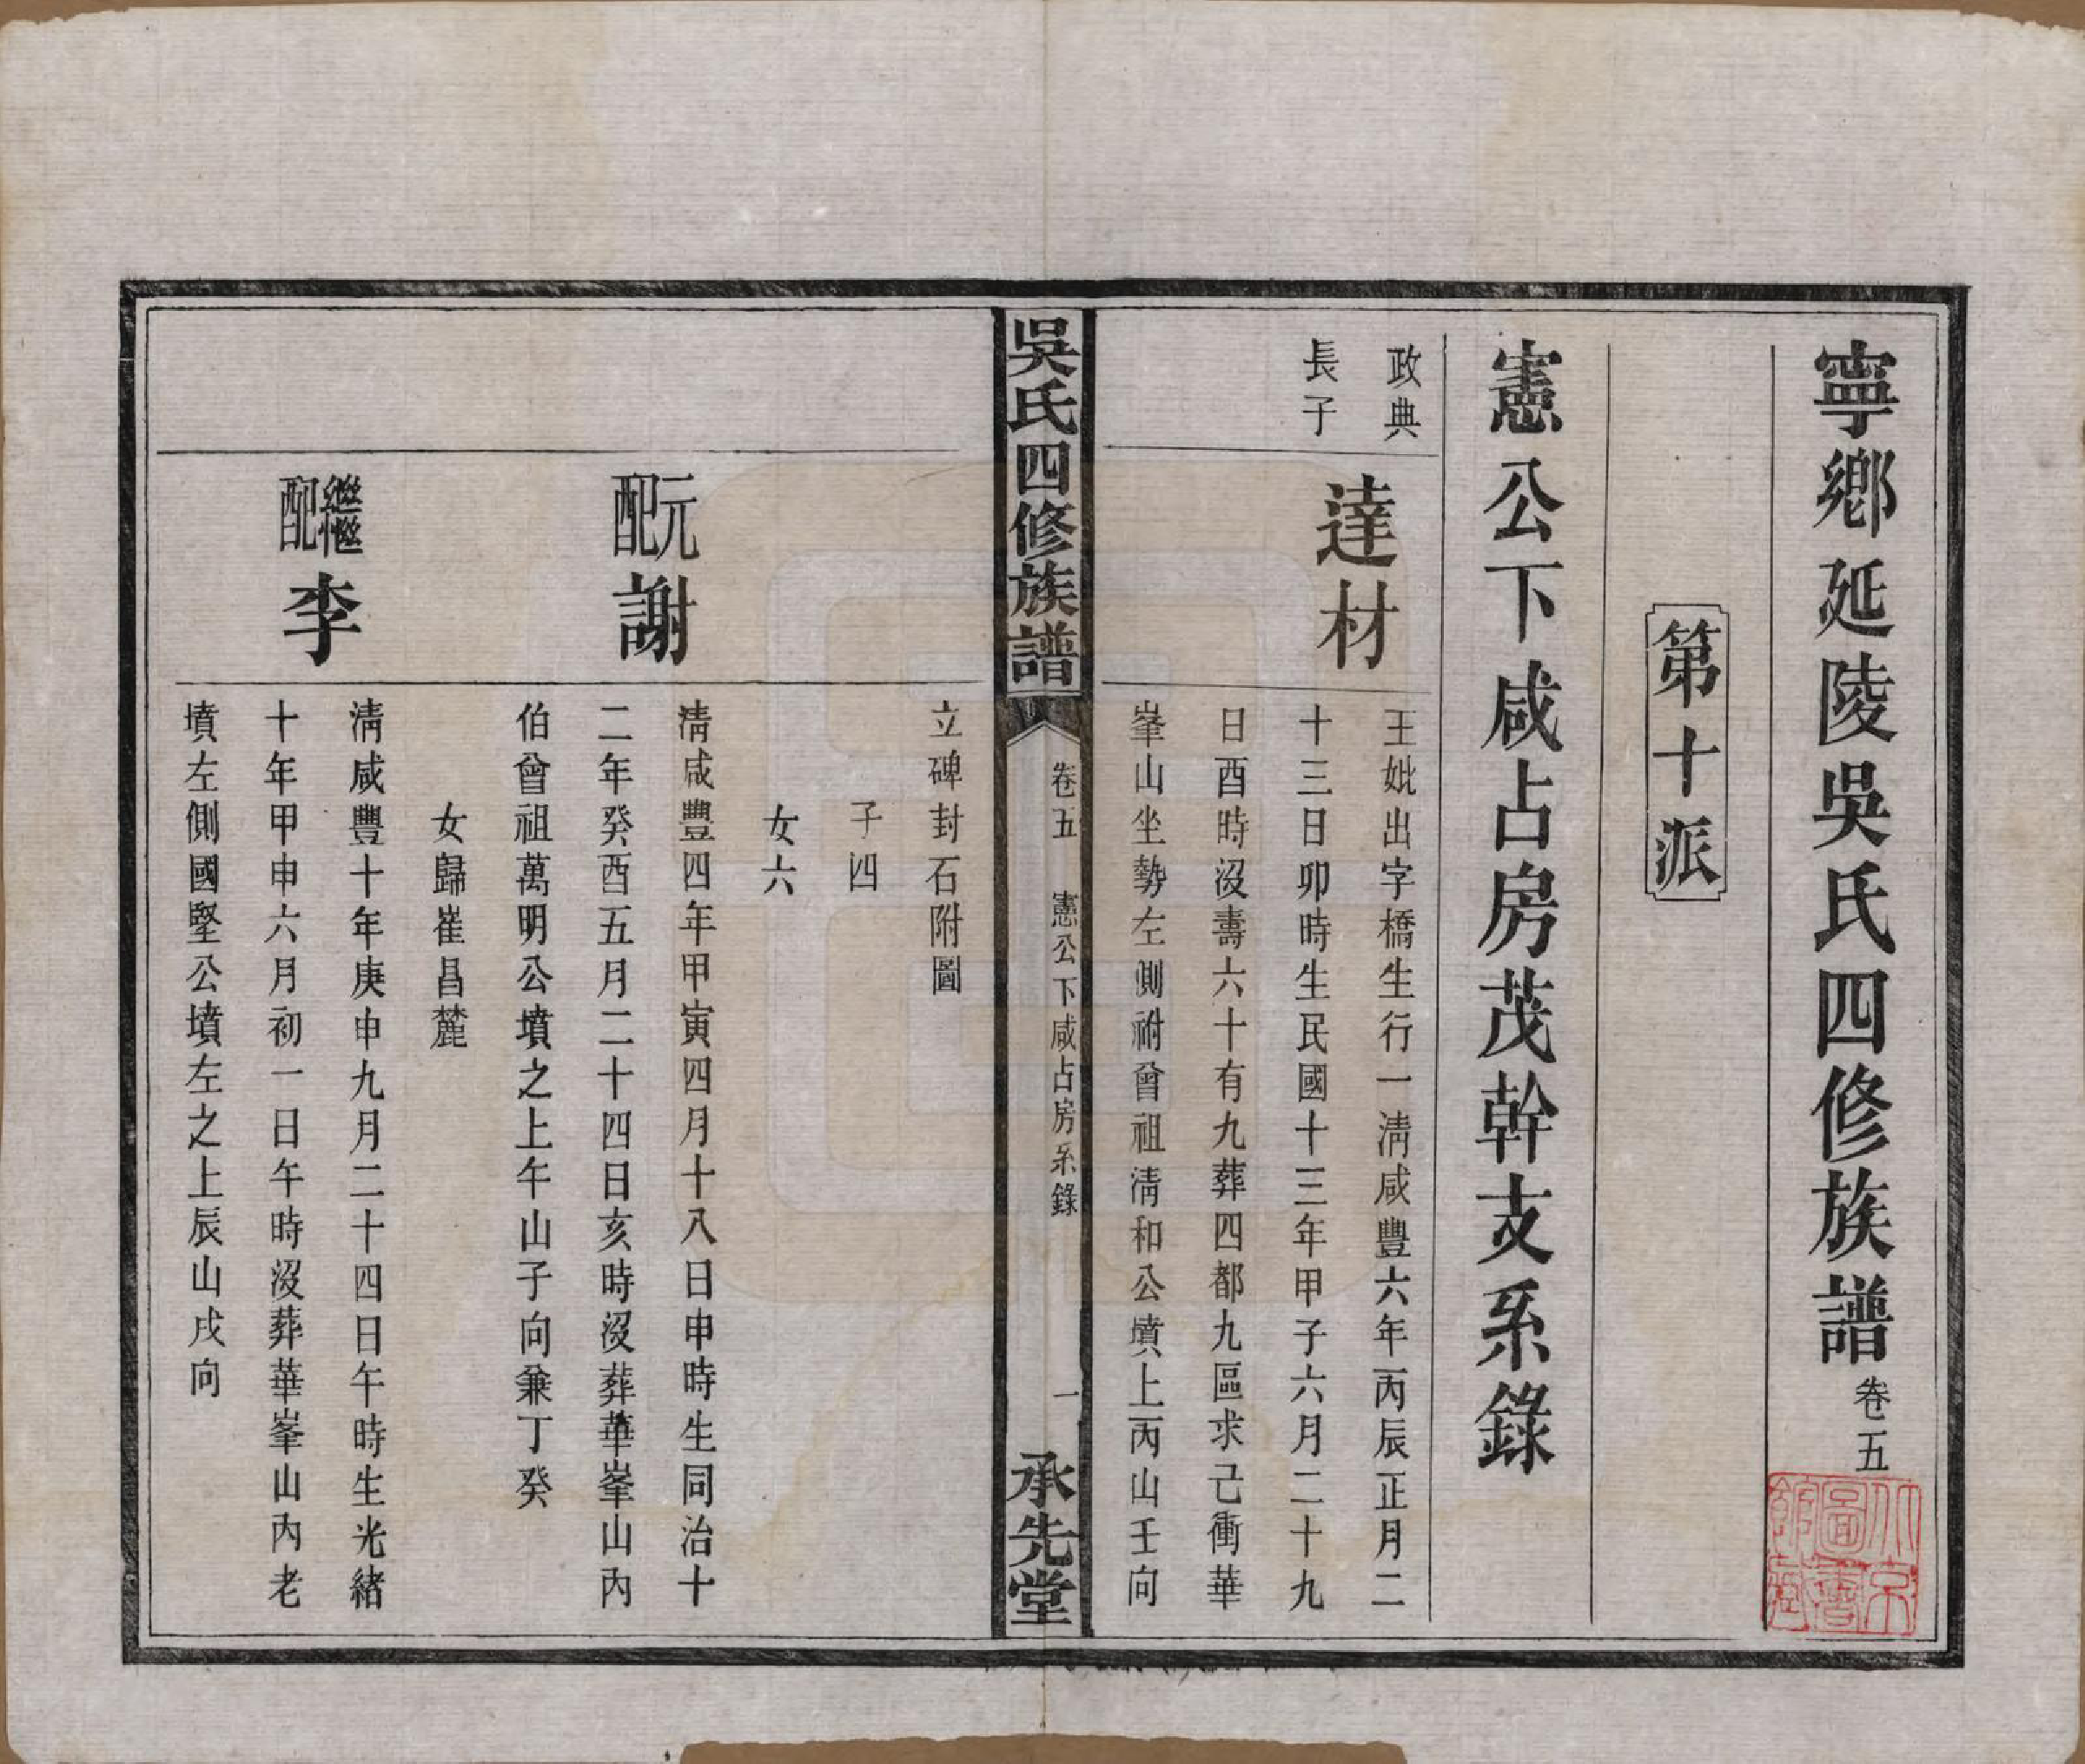 寧鄉延陵吳氏四修族譜卷五
第十派
憲公下咸占房茂幹支系錄
政典
長子
達材
王妣出字橋生行一淸咸豐六年丙辰正月二
十三日卯時生民國十三年甲子六月二十九
日酉時沒壽六十有九葬四都九區求己衝華
峯山坐勢左側祔曾祖淸和公墳上丙山壬向
吳氏四修族譜
卷五
憲公下咸占房系錄
一
承先堂
立碑封石附圖
子四
女六
元配謝
淸咸豐四年甲寅四月十八日申時生同治十
二年癸酉五月二十四日亥時沒葬華峯山內
伯曾祖萬明公墳之上午山子向兼丁癸
女歸崔昌麓
繼配李
淸咸豐十年庚申九月二十四日午時生光緒
十年甲申六月初一日午時沒葬華峯山內老
墳左側國堅公墳左之上辰山戌向
北京圖書館藏